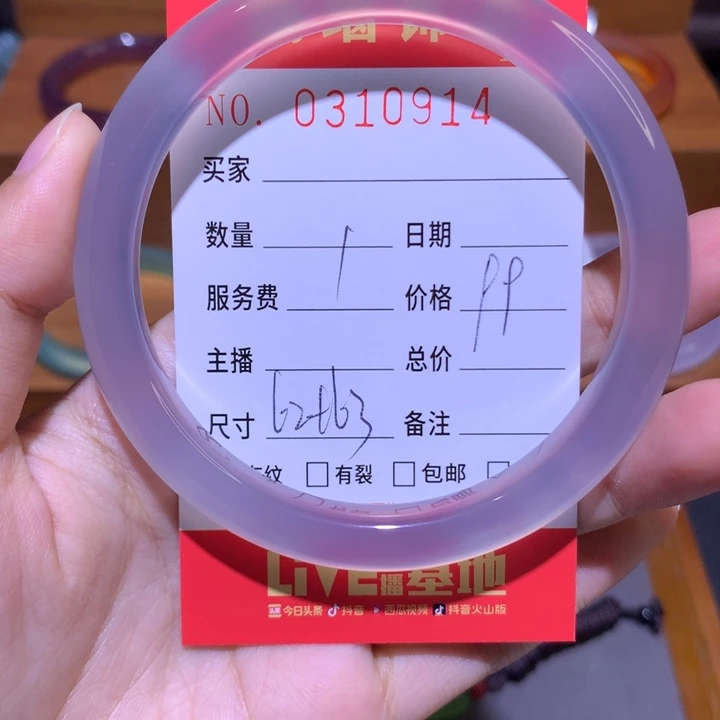 NO. 0310914
买家
数量 1 日期
服务费 价格 99
主播 总价
尺寸 62-63 备注
纹 有裂 包邮
LIVE播基地
今日头条 抖音 西瓜视频 抖音火山版